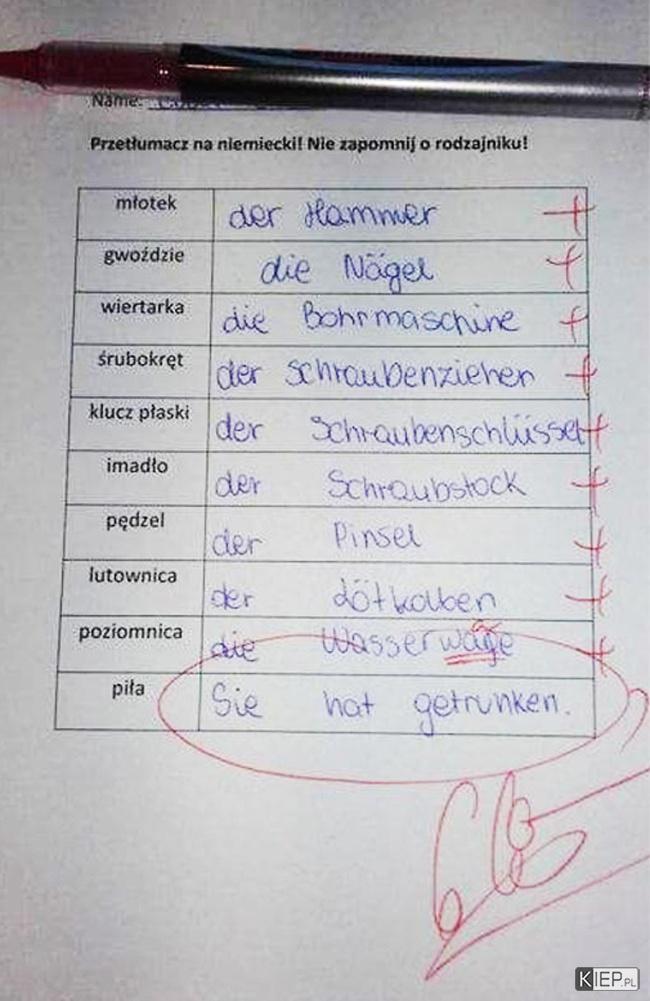 Name:
Przetłumacz na niemiecki! Nie zapomnij o rodzajniku!
młotek der Hammer +
gwoździe die Nägel +
wiertarka die Bohrmaschine +
śrubokręt der Schraubenzieher +
klucz płaski der Schraubenschlüssel +
imadło der Schraubstock +
pędzel der Pinsel +
lutownica der Lötkolben +
poziomnica die Wasserwage +
piła Sie hat getrunken.
KIEP.PL